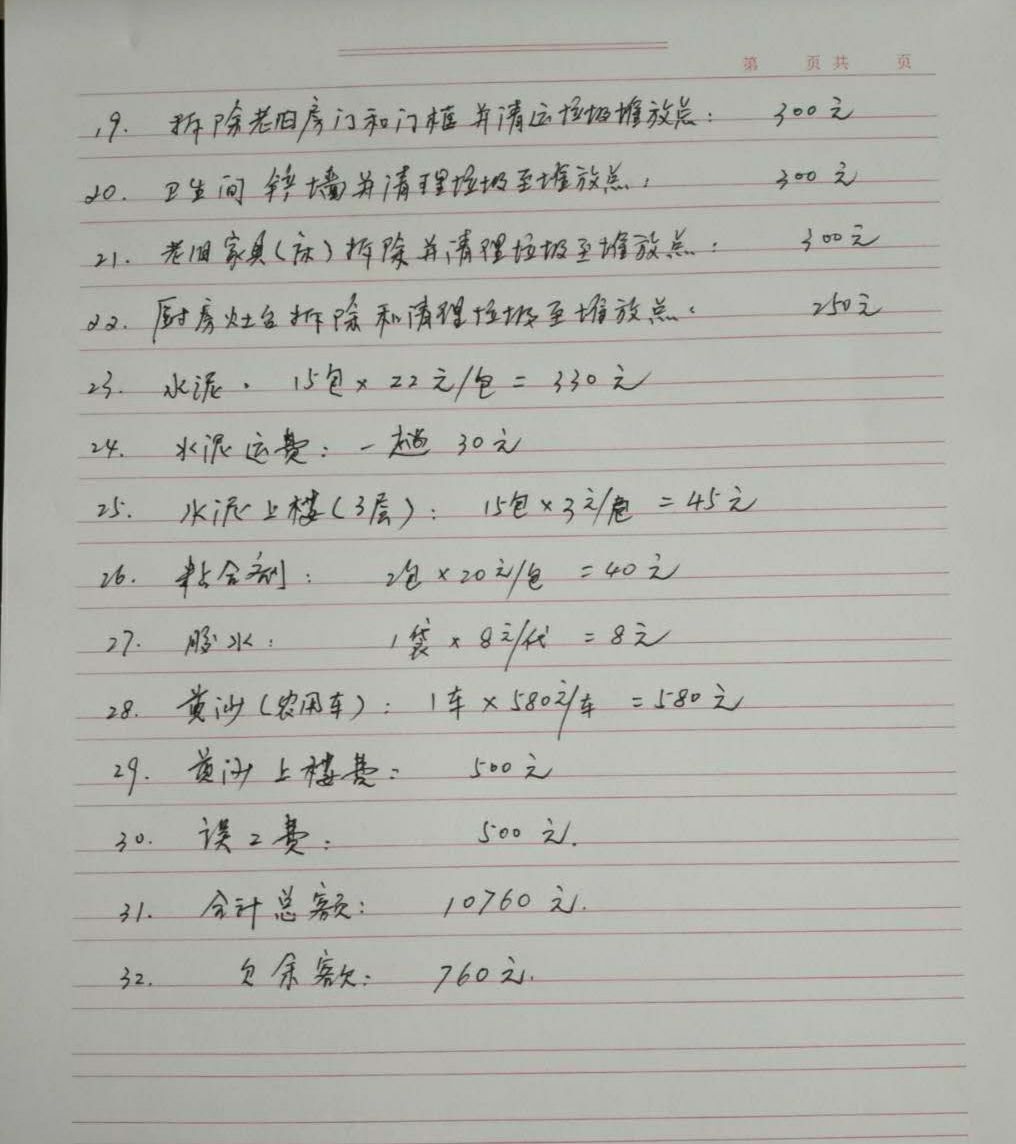 第 页 共 页
19. 拆除老旧房门和门框并清运垃圾堆放点: 300元
20. 卫生间 铲墙并清理垃圾至堆放点: 300元
21. 老旧家具(床)拆除并清理垃圾至堆放点: 300元
22. 厨房灶台拆除和清理垃圾至堆放点: 250元
23. 水泥. 15包×22元/包=330元
24. 水泥运费: 一趟 30元
25. 水泥上楼(3层): 15包×3元/包=45元
26. 粘合剂: 2包×20元/包=40元
27. 胶水: 1袋×8元/代=8元
28. 黄沙(农用车): 1车×580元/车=580元
29. 黄沙上楼费: 500元
30. 误工费: 500元.
31. 合计总额: 10760元.
32. 欠余额: 760元.